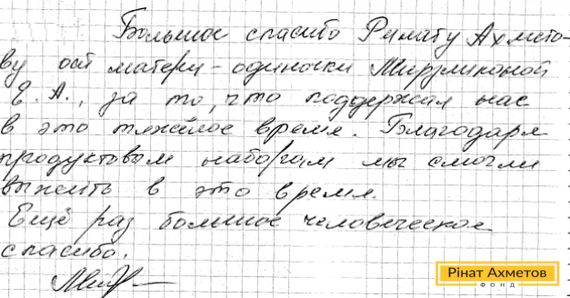 Большое спасибо Ринату Ахмето-
ву от матери-одиночки
Е. А., за то, что поддержал нас
в это тяжёлое время. Благодаря
продуктовым наборам мы смогли
выжить в это время.
Ещё раз большое человеческое
спасибо.
Рінат Ахметов
ФОНД